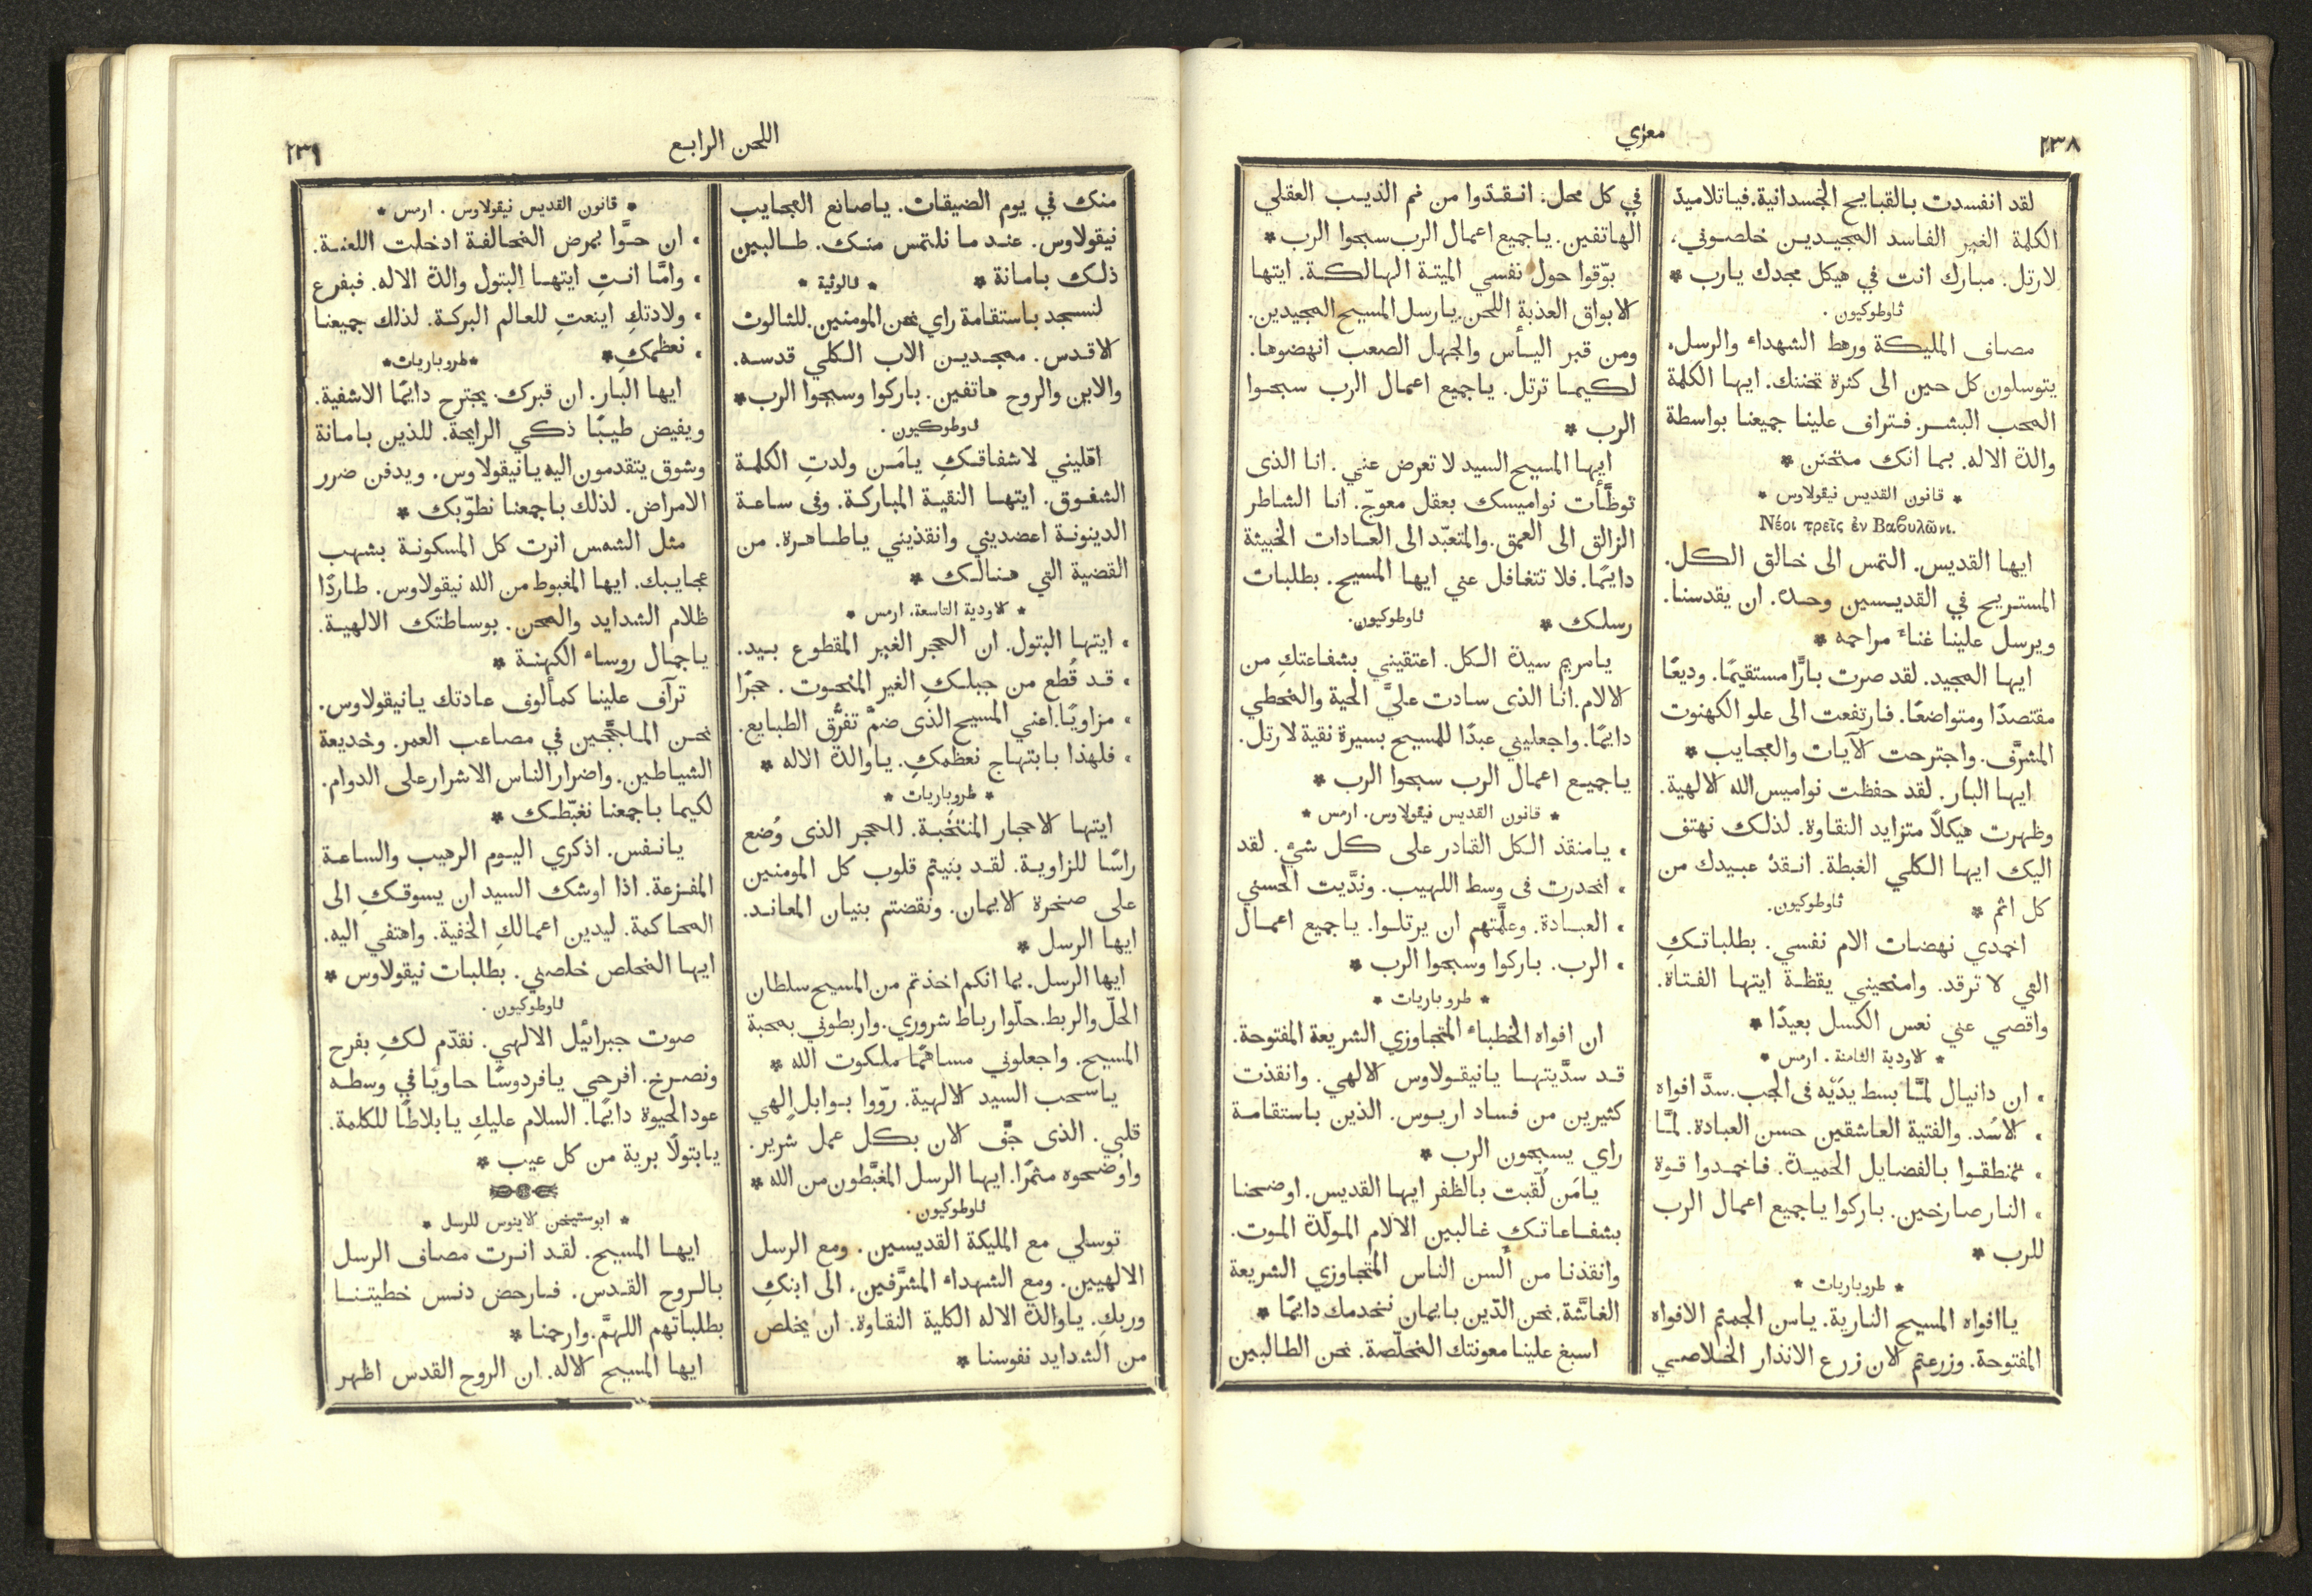 ٢٣٨
معزي
لقد انفسدت بالقبايح الجسدانية. فياتلاميذ
الكلمة الغير الفاسد المجيدين خلصوني،
لارتل. مبارك انت في هيكل مجدك يارب *
ثاوطوكيون.
مصاف المليكة ورهط الشهداء والرسل،
يتوسلون كل حين الى كثرة تحننك. ايها الكلمة
المحب البشر. فتراف علينا جميعنا بواسطة
والدة الاله. بما انك متحنن *
* قانون القديس نيقولاوس *
Νέοι τρεῖς ἐν Βαϐυλῶνι.
ايها القديس. التمس الى خالق الكل.
المستريح في القديسين وحده. ان يقدسنا.
ويرسل علينا غناء مراحمه *
ايها المجيد. لقد صرت بارًّا مستقيمًا. وديعًا
مقتصدًا ومتواضعًا. فارتفعت الى علو الكهنوت
المشرَّف. واجترحت الآيات والعجايب *
ايها البار. لقد حفظت نواميس الله الالهية.
وظهرت هيكلاً متزايد النقاوة. لذلك نهتف
اليك ايها الكلي الغبطة. انقذ عبيدك من
كل اثم * ثاوطوكيون.
اخمدي نهضات الام نفسي. بطلباتكِ
التي لا ترقد. وامنحيني يقظة ايتها الفتاة.
واقصي عني نعس الكسل بعيدًا *
* الاودية الثامنة. ارمس *
، ان دانيال لمَّا بسط يدَيْه فى الجب. سدَّ افواه
، الاسُد. والفتية العاشقين حسن العبادة. لمَّا
، تمنطقوا بالفضايل الحميدة. فاخمدوا قوة
، النار صارخين. باركوا ياجميع اعمال الرب
للرب *
* طروباريات *
ياافواه المسيح النارية. يامن الجمتم الافواه
المفتوحة. وزرعتم الان زرع الانذار الخلاصي
في كل محل: انقذوا من فم الذيب العقلي
الهاتفين. ياجميع اعمال الرب سبحوا الرب *
بوّقوا حول نفسي الميتة الهالكة. ايتها
الابواق العذبة اللحن. يارسل المسيح المجيدين.
ومن قبر اليأس والجهل الصعب انهضوها.
لكيما ترتل. ياجميع اعمال الرب سبحوا
الرب *
ايها المسيح السيد لا تعرض عني. انا الذى
توطَّأت نواميسك بعقل معوجّ. انا الشاطر
الزالق الى العمق. والمتعبّد الى العادات الخبيثة
دايمًا. فلا تتغافل عني ايها المسيح. بطلبات
رسلك * ثاوطوكيون.
يامريم سيدة الكل. اعتقيني بشفاعتكِ من
الالام. انا الذى سادت عليَّ الحية والمخطي
دايمًا. واجعليني عبدًا للمسيح بسيرة نقية لارتل.
ياجميع اعمال الرب سبحوا الرب *
* قانون القديس نيقولاوس. ارمس *
، يامنقذ الكل القادر على كل شئ. لقد
، انحدرت فى وسط اللهيب. وندَّيت الحسني
، العبادة. وعلَّمتهم ان يرتلوا. ياجميع اعمال
، الرب. باركوا وسبحوا الرب *
* طروباريات *
ان افواه الخطباء المتجاوزي الشريعة المفتوحة.
قد سدَّيتها يانيقولاوس الالهي. وانقذت
كثيرين من فساد اريوس. الذين باستقامة
راي يسبحون الرب *
يامَن لُقبت بالظفر ايها القديس. اوضحنا
بشفاعاتك غالبين الالام المولّدة الموت.
وانقذنا من ألسن الناس المتجاوزي الشريعة
الغاشَّة. نحن الذين بايمان نخدمك دايمًا *
اسبغ علينا معونتك المخلّصة. نحن الطالبين
اللحن الرابع
٢٣٩
منك في يوم الضيقات. ياصانع العجايب
نيقولاوس. عند ما نلتمس منك. طالبين
ذلك بامانة * * ثالوثية *
لنسجد باستقامة راي نحن المومنين. للثالوث
الاقدس. ممجدين الاب الكلي قدسه.
والابن والروح هاتفين. باركوا وسبحوا الرب *
ثاوطوكيون.
اقّليني لاشفاقكِ يامَن ولدتِ الكلمة
الشفوق. ايتها النقية المباركة. وفى ساعة
الدينونة اعضديني وانقذيني ياطاهرة. من
القضية التي هنالك *
* الاودية التاسعة. ارمس *
، ايتها البتول. ان الحجر الغير المقطوع بيد.
، قد قُطع من جبلكِ الغير المنحوت. حجرًا
، مزاويًا. اعني المسيح الذى ضمَّ تفرُّق الطبايع.
، فلهذا بابتهاج نعظمكِ. ياوالدة الاله *
* طروباريات *
ايتها الاحجار المنتخَبة. للحجر الذى وُضع
راسًا للزاوية. لقد بنيتم قلوب كل المومنين
على صخرة الايمان. ونقضتم بنيان المعاند.
ايها الرسل *
ايها الرسل. بما انكم اخذتم من المسيح سلطان
الحلّ والربط. حلّوا رباط شروري. واربطوني بمحبة
المسيح. واجعلوني مساهمًا ملكوت الله *
ياسحب السيد الالهية. روّوا بوابل الهي
قلبي. الذى جفَّ الان بكل عمل شرير.
واوضحوه مثمرًا. ايها الرسل المغبَّطون من الله *
ثاوطوكيون.
توسلي مع المليكة القديسين. ومع الرسل
الالهيين. ومع الشهداء المشرَّفين. الى ابنكِ
وربكِ. ياوالدة الاله الكلية النقاوة. ان يخلص
من الشدايد نفوسنا *
* قانون القديس نيقولاوس. ارمس *
، ان حوَّا بمرض المخالفة ادخلت اللعنة.
، وامَّا انتِ ايتها البتول والدة الاله. فبفرع
، ولادتكِ اينعتِ للعالم البركة. لذلك جميعنا
، نعظمكِ * * طروباريات *
ايها البار. ان قبرك يجترح دايمًا الاشفية.
ويفيض طيبًا ذكي الرايحة. للذين بامانة
وشوق يتقدمون اليه يانيقولاوس. ويدفن ضرر
الامراض. لذلك باجمعنا نطوّبك *
مثل الشمس انرت كل المسكونة بشهب
عجايبك. ايها المغبوط من الله نيقولاوس. طاردًا
ظلام الشدايد والمحن. بوساطتك الالهية.
ياجمال روساء الكهنة *
ترآف علينا كمألوف عادتك يانيقولاوس.
نحن الملججين في مصاعب العمر. وخديعة
الشياطين. واضرار الناس الاشرار على الدوام.
لكيما باجمعنا نغبّطك *
يانفس. اذكري اليوم الرهيب والساعة
المفزعة. اذا اوشك السيد ان يسوقكِ الى
المحاكمة. ليدين اعمالكِ الخفية. واهتفي اليه.
ايها المخلص خلصني. بطلبات نيقولاوس *
ثاوطوكيون.
صوت جبرائيل الالهي. نقدّم لكِ بفرح
ونصرخ. افرحي يافردوسًا حاويًا في وسطه
عود الحيوة دايمًا. السلام عليكِ يابلاطًا للكلمة.
يابتولًا برية من كل عيب *
* ابوستيخن الاينوس للرسل *
ايها المسيح. لقد انرت مصاف الرسل
بالروح القدس. فارحض دنس خطيتنا
بطلباتهم اللهمَّ. وارحمنا *
ايها المسيح الاله. ان الروح القدس اظهر